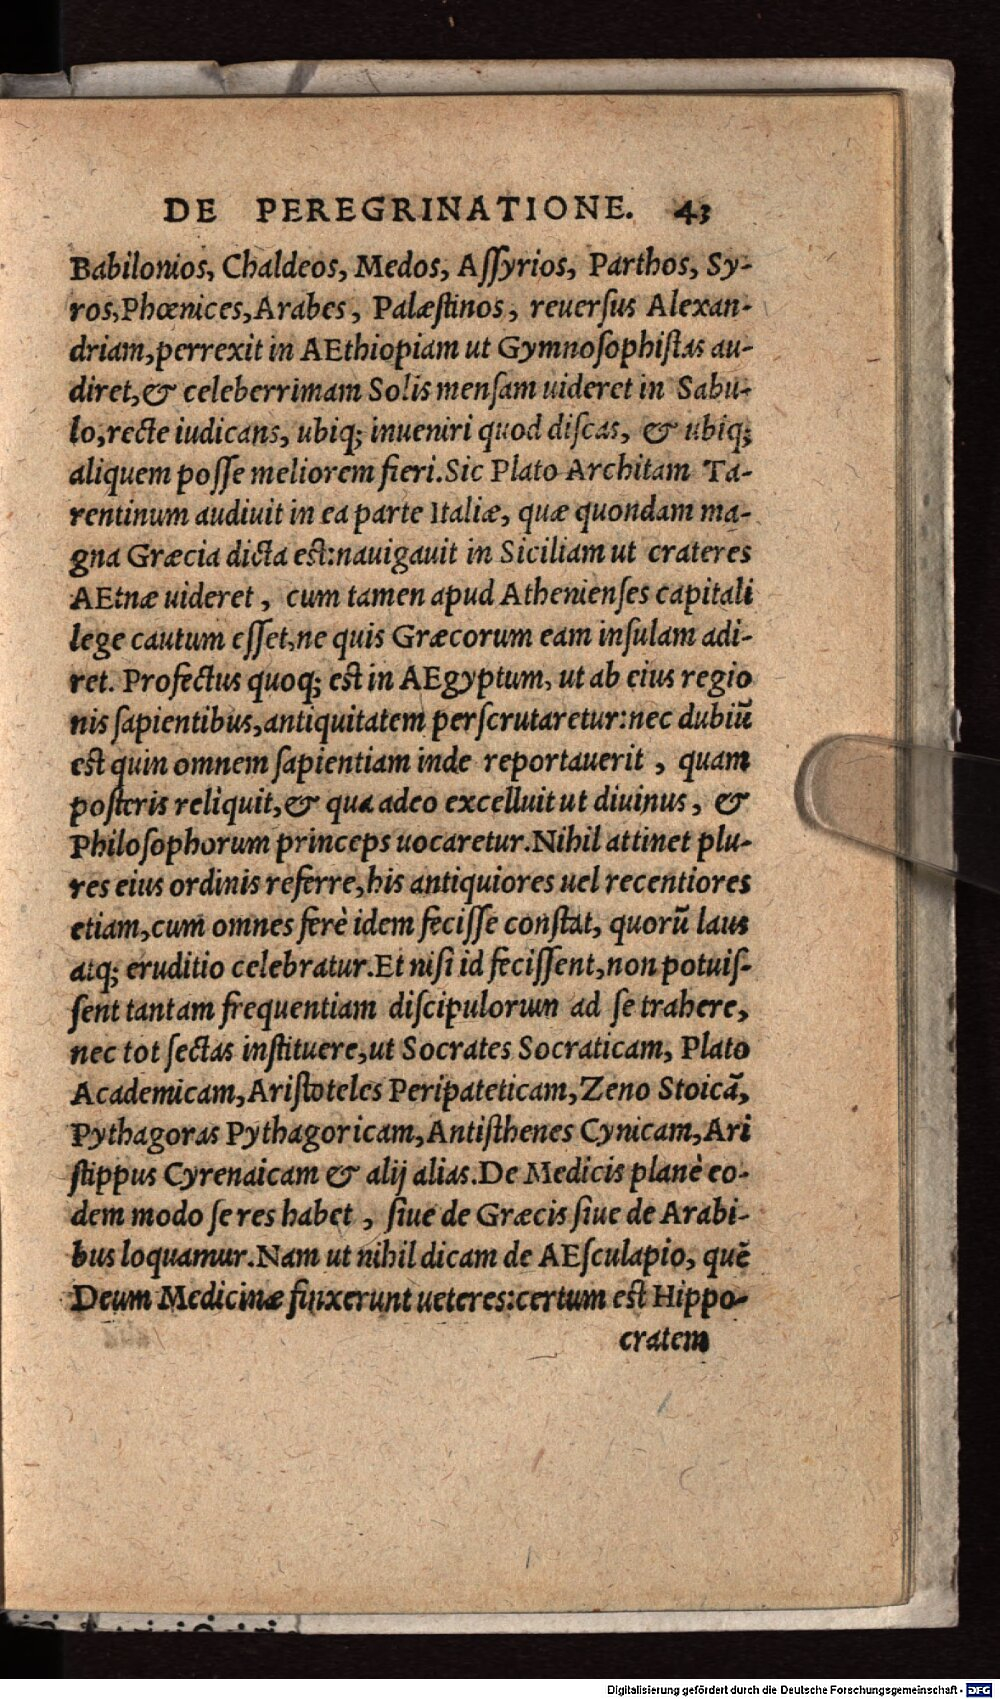 DE PEREGRINATIONE. 43
Babilonios, Chaldeos, Medos, Aſſyrios, Parthos, Sy-
ros,Phœnices,Arabes, Palæſtinos, reuerſus Alexan-
driam,perrexit in AEthiopiam ut Gymnoſophiſtas au-
diret,& celeberrimam Solis menſam uideret in Sabu-
lo,recte iudicans, ubiq; inueniri quod diſcas, & ubiq;
aliquem poſſe meliorem fieri.Sic Plato Architam Ta-
rentinum audiuit in ea parte Italiæ, quæ quondam ma-
gna Græcia dicta est:nauigauit in Siciliam ut crateres
AEtnæ uideret, cum tamen apud Athenienſes capitali
lege cautum eſſet,ne quis Græcorum eam inſulam adi-
ret. Profectus quoq; est in AEgyptum, ut ab eius regio
nis ſapientibus,antiquitatem perſcrutaretur:nec dubiũ
est quin omnem ſapientiam inde reportauerit, quam
posteris reliquit,& qua adeo excelluit ut diuinus, &
Philoſophorum princeps uocaretur.Nihil attinet plu-
res eius ordinis referre,his antiquiores uel recentiores
etiam,cum omnes ferè idem feciſſe conſtat, quorũ laus
atq; eruditio celebratur.Et niſi id feciſſent,non potuiſ-
ſent tantam frequentiam diſcipulorum ad ſe trahere,
nec tot ſectas inſtituere,ut Socrates Socraticam, Plato
Academicam,Ariſtoteles Peripateticam,Zeno Stoicã,
Pythagoras Pythagoricam,Antiſthenes Cynicam,Ari
ſtippus Cyrenaicam & alij alias.De Medicis planè eo-
dem modo ſe res habet, ſiue de Græcis ſiue de Arabi-
bus loquamur.Nam ut nihil dicam de AEſculapio, quẽ
Deum Medicinæ finxerunt ueteres:certum est Hippo-
cratem
Digitalisierung gefördert durch die Deutsche Forschungsgemeinschaft - DFG